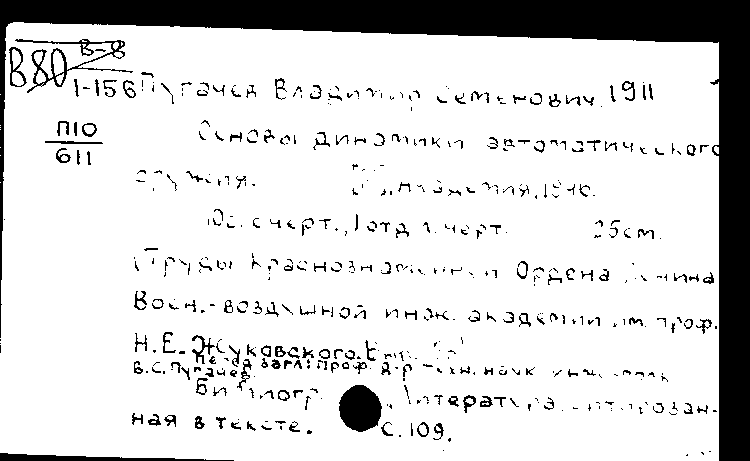 В-8
В80
1-156 Пугачев Владимир Семенович, 1911
П10
611
Основы динамики автоматического
оружия. Академия, 1946.
с черт., 1 отд. л. черт. 25 см.
(Труды Краснознаменной Ордена Ленина
Воен.-воздушной инж. академии им. проф.
Н.Е. Жуковского.
Перед загл: проф. д-р техн. наук
В.С. Пугачев.
Библиогр. "Литература, цитирован-
ная в тексте." С. 109.